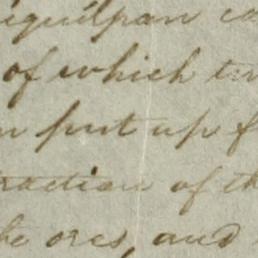 iquilpan co
of which tw
n put up f
raction of th
he ores, and